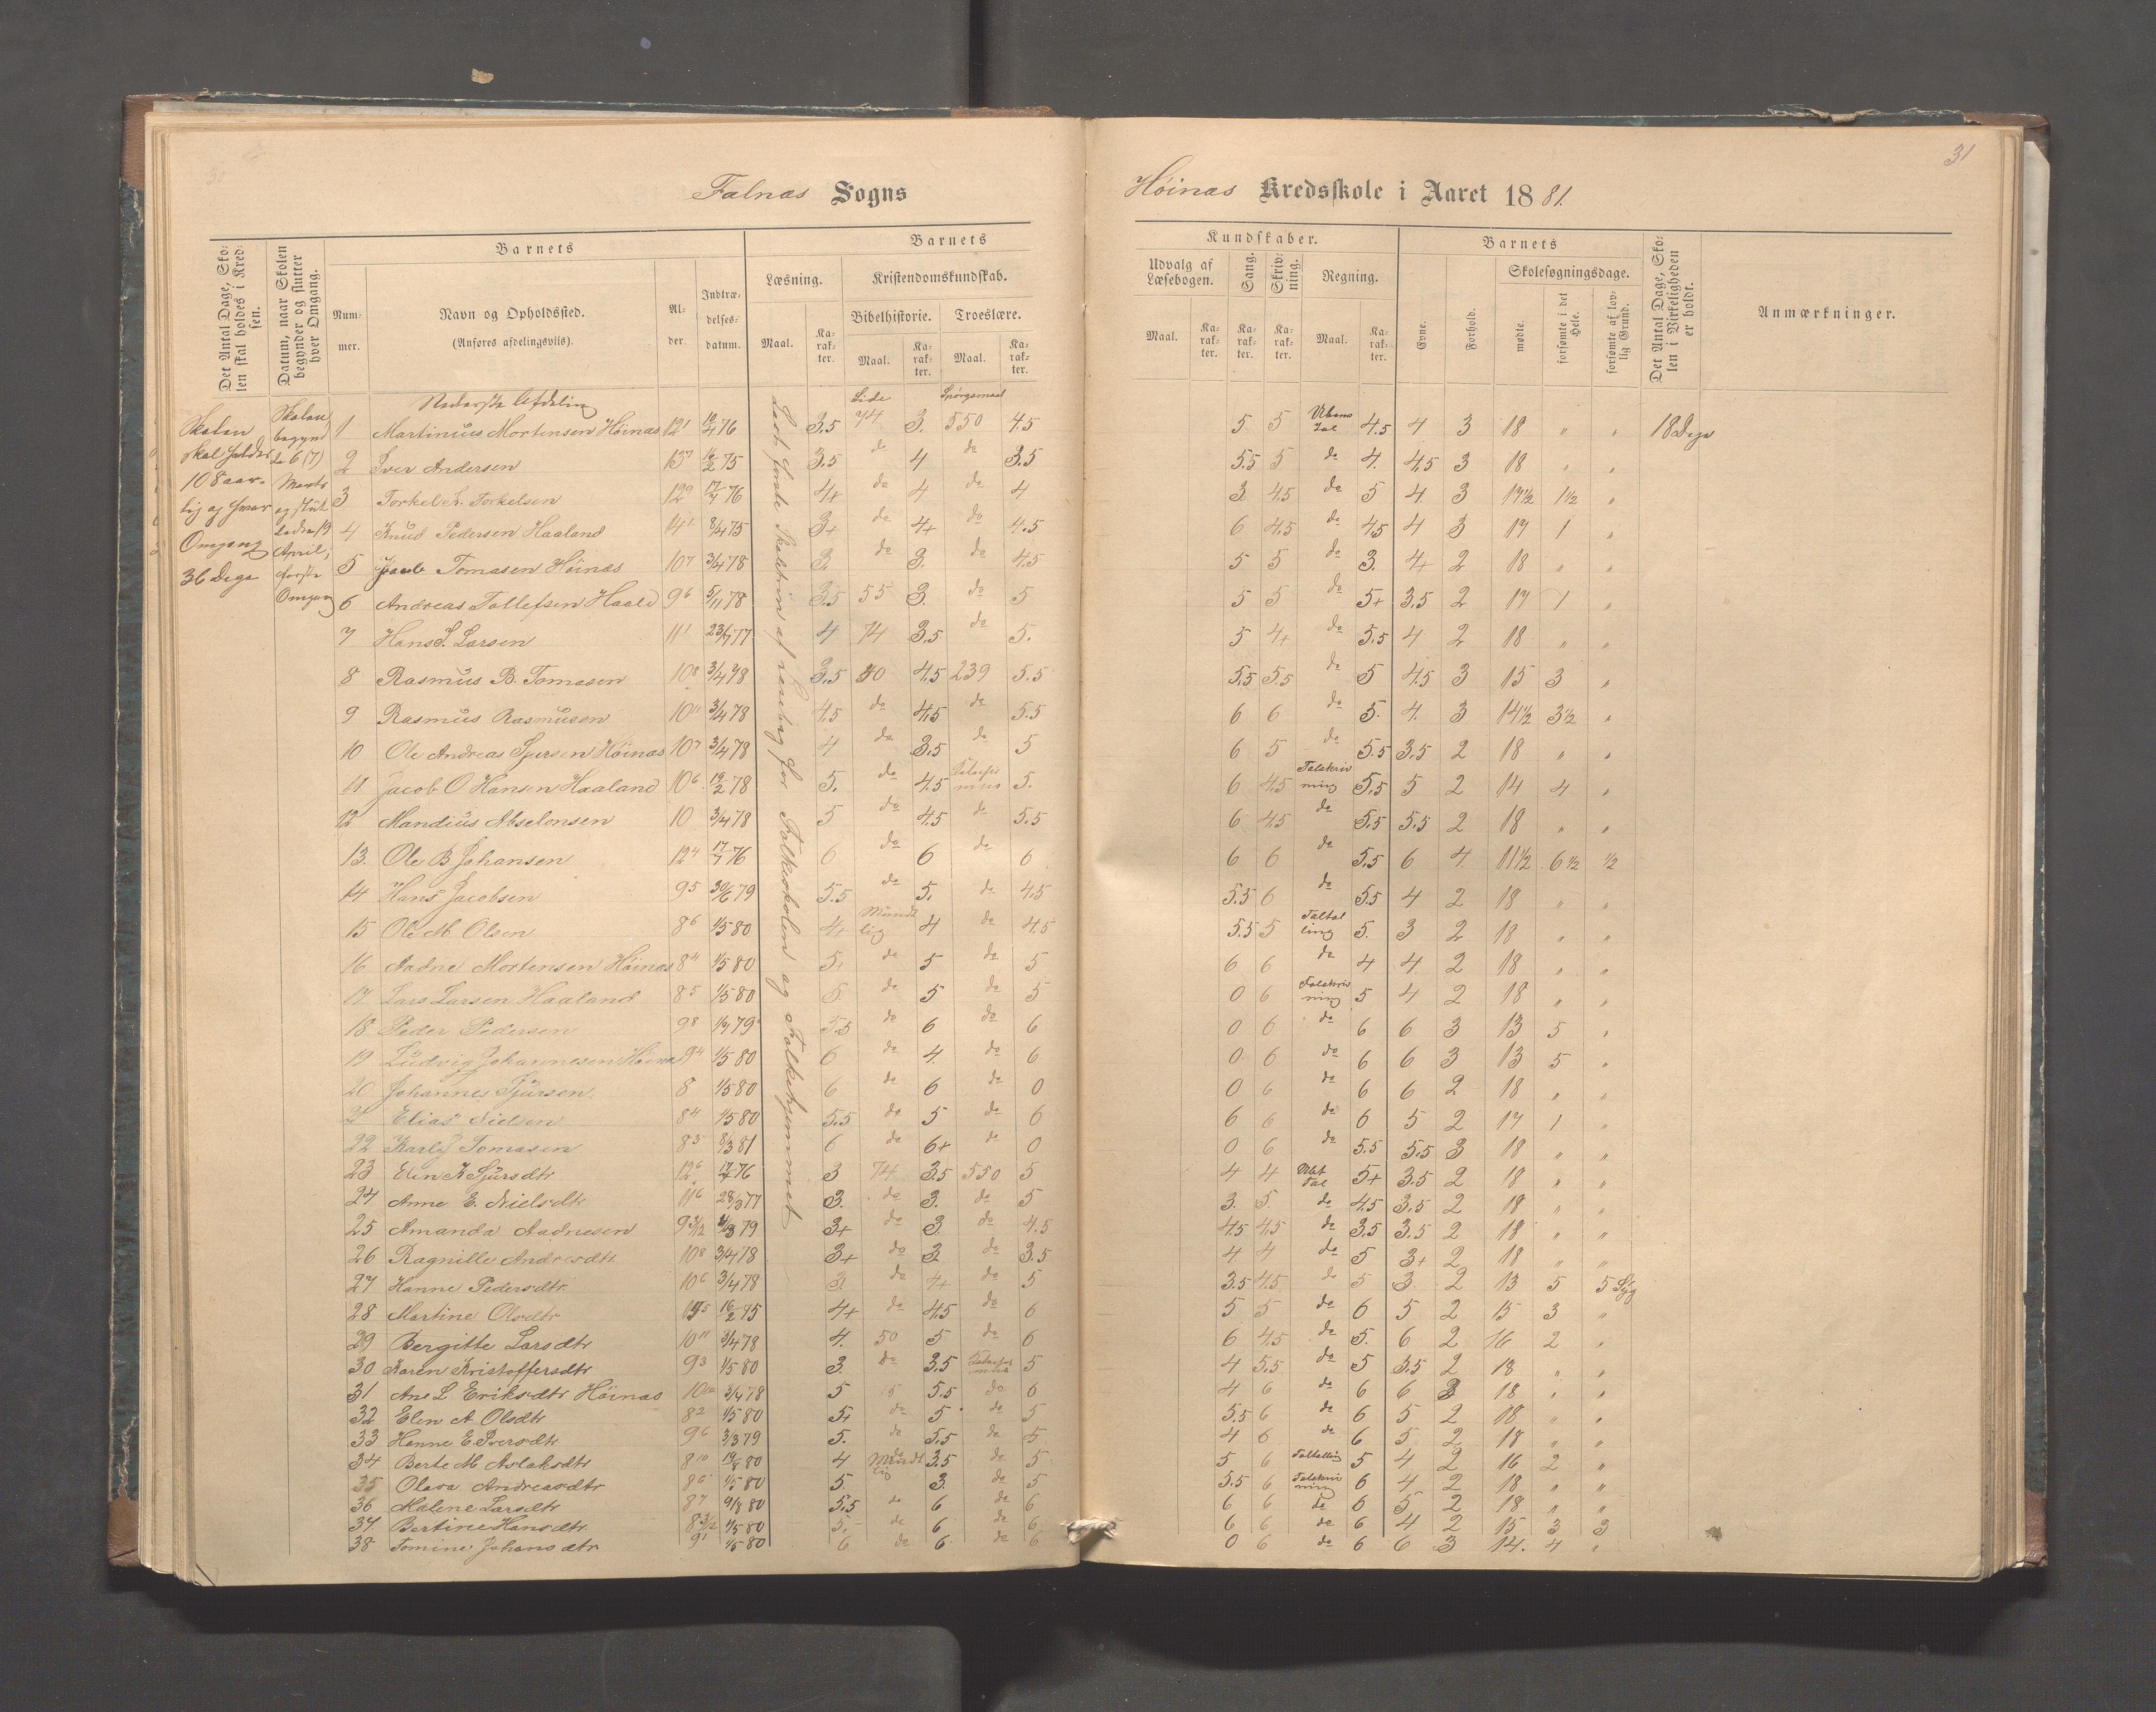 31
Falnæs Sogns
Høinæs Kredsskole i Aaret 1881.
Det Antal Dage, Skolen skal holdes i Kredsen.
Datum, naar Skolen begynder og slutter hver Omgang.
Barnets
Nummer.
Navn og Opholdssted.
(Anføres afdelingsvis).
Alder.
Indtrædelsesdatum.
Barnets
Læsning.
Maal.
Karakter.
Kristendomskundskab.
Bibelhistorie.
Maal.
Karakter.
Troeslære.
Maal.
Karakter.
Kundskaber.
Udvalg af Læsebogen.
Maal.
Karakter.
Sang.
Karakter.
Skrivning.
Karakter.
Regning.
Maal.
Karakter.
Barnets
Evne.
Forhold.
Skolesøgningsdage.
mødte.
forsømte i det Hele.
forsømte af lovlig Grund.
Det Antal Dage, Skolen i Virkeligheden er holdt.
Anmærkninger.
Skolen
skal holdes
108 aar-
lig og hver
Omgang
36 Dage
Skolen
begynd
te 6 (7)
Marts
og slut
tedes 19
April,
første
Omgang
Nederste Afdeling
Side Spørgsmaal
1 Martinius Mortensen Høinæs 12 1 76 3,5 74 3. 550 4.5 5 5 4.5 4 3 18 " " 18 Dage
2 Iver Andersen 13 7 16/2 75 3.5 do 4 do 3.5 5.5 5 do 4. 4.5 3 18 " "
3 Torkel Kr. Torkelsen 12 9 17/7 76 4+ do 4 do 4 3. 4.5 do 5 4. 3 17½ 1½ "
4 Knud Pedersen Haaland 14 1 8/4 75 3+ do 4+ do 4.5 6 4.5 do 4.5 4 3 17 1 "
5 Jacob Tomasen Høinæs 10 7 3/4 78 3. do 3. do 4.5 5 5 do 3. 4+ 2 18 " "
6 Andreas Tollefsen Haald 9 6 5/11 78 3.5 55 3. do 5 5 5 do 5+ 3.5 2 17 1 "
7 Hans S. Larsen 11 1 23/4 77 4 74 3.5 do 5. 5 4+ do 5.5 4 2 18 " "
8 Rasmus B. Tomasen 10 8 3/4 78 3,5 40 4.5 239 5.5 5.5 5.5 do 5 4.5 3 15 3 "
9 Rasmus Rasmusen 10 11 3/4 78 4.5 do 4.5 do 5.5 6 6 do 5. 4. 3 14½ 3½ "
10 Ole Andreas Sjursen Høinæs 10 7 3/4 78 4 do 3.5 do 5 6 5 do 5.5 3.5 2 18 " "
11 Jacob O Hansen Haaland 10 6 19/2 78 5. do 4.5 5. 6 4.5 Talskrivning 5.5 5 2 14 4 "
12 Mandius Abselonsen 10 3/4 78 5 do 4.5 do 5.5 6 4.5 do 5.5 5.5 2 18 " "
13. Ole B Johansen 12 4 17/7 76 6 do 6 do 6 6 6 do 5.5 6 4. 11½ 6½ ½
14 Hans Jacobsen 9 5 30/6 79 5.5 do 5. do 4.5 5.5 6 do 5.5 4 2 18 " "
15 Ole M Olsen 8 6 1/5 80 4. Mundtlig 4 do 4.5 5.5 5 Taltælling 5. 3 2 18 " "
16 Aadne Mortensen Høinæs 8 4 1/5 80 5. do 5 do 5 6 6 do 4 4. 2 18 " "
17 Lars Larsen Haaland 8 5 1/5 80 5 do 5 do 5 0 6 Talskrivning 5 4 2 18 " "
18 Peder Pedersen 9 8 79 5.5 do 6 do 6 0 6 do 6 6 3 13 5 "
19 Ludvig Johannesen Høinæs 9 4 1/5 80 6 do 4. do 6 0 6 do 6 6 3 13 5 "
20 Johannes Sjursen 8 1/5 80 6 do 6 do 0 0 6 do 6 6 2 18 " "
21 Elias Nielsen 8 4 1/5 80 5.5 do 5 do 6 6 6 do 6 5 2 17 1 "
22 Karl J Tomasen 8 5 8/3 81 6 do 6+ do 0 0 6 do 5.5 5.5 3 18 " "
23 Elen K Sjursdtr 12 6 76 3 74 3.5 550 5 4 4 5+ 3.5 2 18 " "
24 Anne E. Nielsdtr 11 6 28/3 77 3. do 3. do 5 3. 5 do 4.5 3.5 2 18 " "
25 Amanda Aadnesen 9 79 3+ do 3. do 4.5 4.5 4.5 do 3.5 3.5 2 18 " "
26 Ragnille Andersdtr. 10 8 3/4 78 3+ do 3. do 3.5 4 4 do 5 3+ 2 18 " "
27 Hanne Pedersdtr. 10 6 3/4 78 3. do 4+ do 5 3.5 4.5 do 5 3. 2 13 5 5 Syg
28 Martine Olsdtr 16/2 75 4+ do 4.5 do 6 5 5 do 6 5 2 15 3 "
29 Bergitte Larsdtr 10 11 3/4 78 4. 50 5 do 6 6 4.5 do 5. 6 2 16 2 "
30 Karen Kristoffersdtr 9 3 1/5 80 3. do 3.5 5 4 5.5 do 5 3.5 2 18 " "
31 Ane L Eriksdtr Høinæs 10 3/4 78 5 15 5.5 do 6 4 6 do 6 6 3 18 " "
32 Elen A Olsdtr 8 2 1/5 80 5+ do 5 do 5 5.5 6 do 6 5 2 18 " "
33 Hanne E. Iversdtr 9 6 3/3 79 5. do 5.5 do 5 4 6 do 6 5 2 18 " "
34 Berte M Aslaksdtr 8 10 19/8 80 4 Mundtlig 3.5 do 5 5 6 Taltælling 5 4 2 16 2 "
35 Olava Andreasdtr 8 6 1/5 80 5. 3. do 5 5.5 6 Talskrivning 6 4 2 18 " "
36 Malene Larsdtr 8 7 9/8 80 5.5 do 6 do 6 6 6 do 6 5 2 18 " "
37. Bertine Hansdtr 8 1/5 80 5. do 6 do 6 6 6 do 6 4 2 15 3 3
38 Tomine Johansdtr 9 1 1/5 80 6 do 6 do 6 0 6 do 6 6 3 14. 4 "
Læst første Skoletrin af Læsebog for Folkeskolen og Folkehjemmet